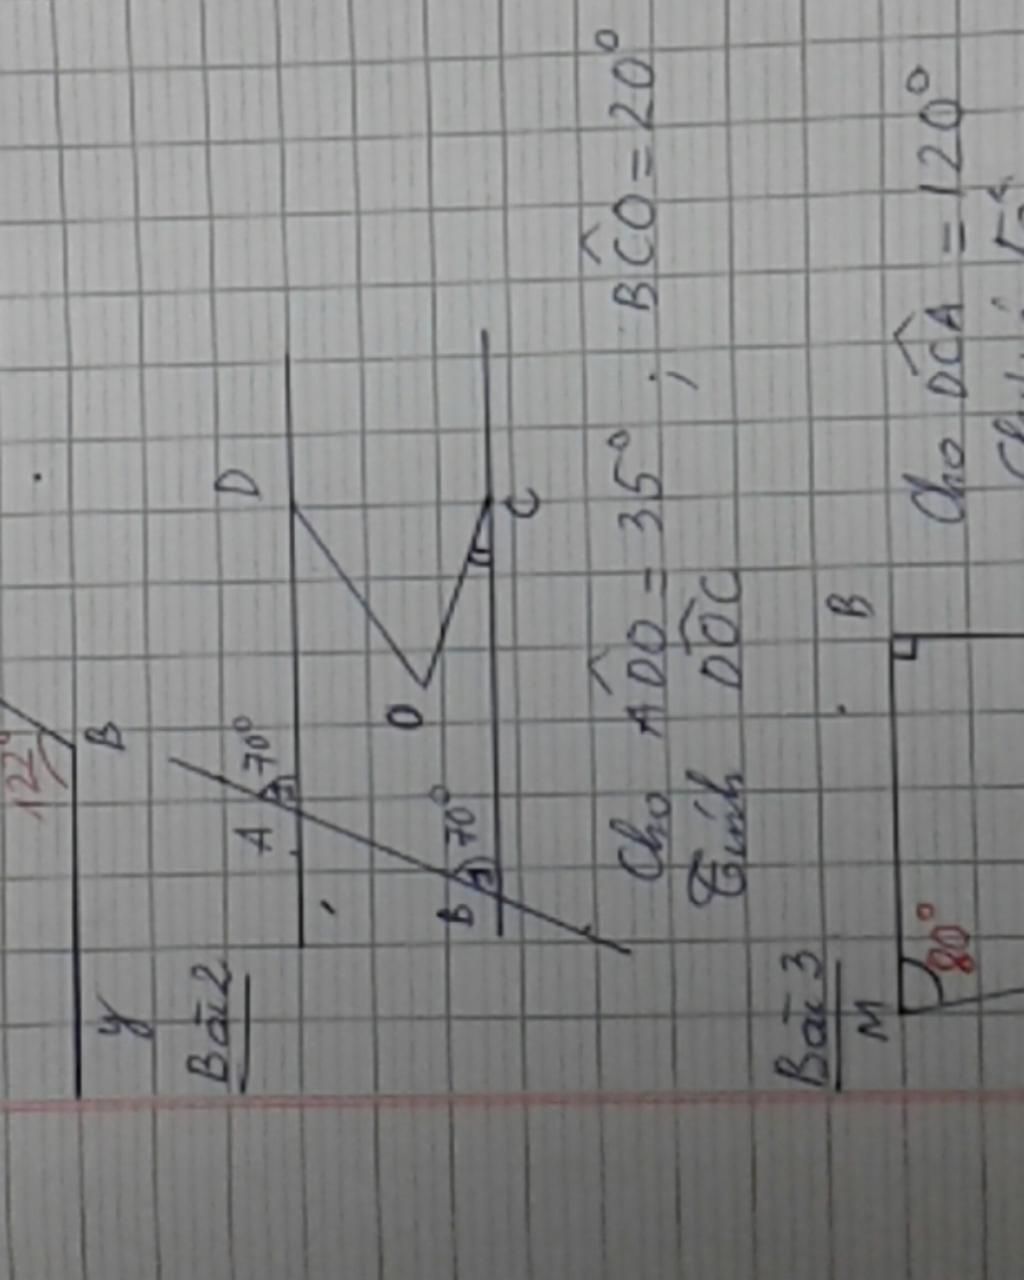 122°
y B
Bài 2
A 70° D
O
B 70° C
Cho ADO = 35° ; BCO = 20°
Tính DOC
Bài 3
M B
80°
Cho DCA = 120°